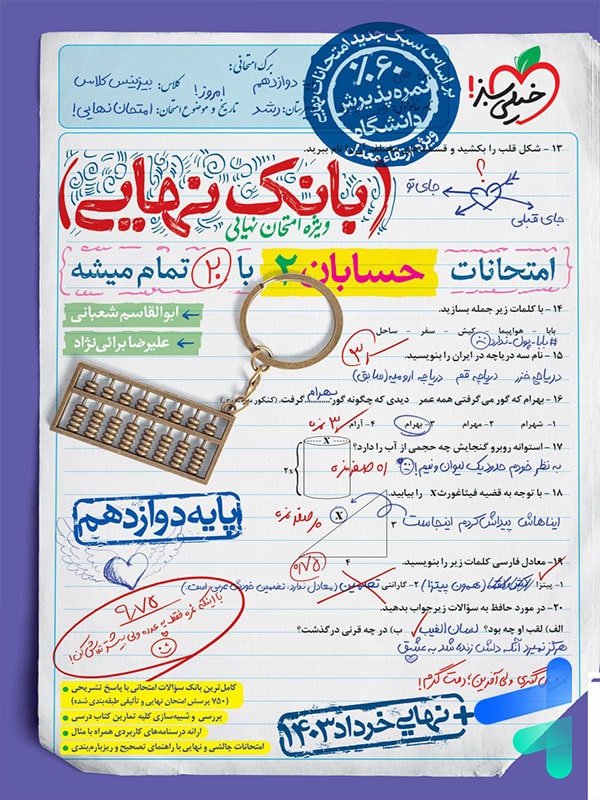 براساس سبک جدید امتحانات نهایی
۶۰%
نمره پذیرش
دانشگاه
ویژه ارتقاء معدل
خیلی سبز!
برگ امتحانی:
دوازدهم
کلاس: بیزینس کلاس
امروز!
رشد
تاریخ و موضوع امتحان: امتحان نهایی!
۱۳ – شکل قلب را بکشید و
نام ببرید.
؟
جای تو
جای قبلی
(بانک نهایی)
ویژه امتحان نهایی
امتحانات حسابان ۲ با ۲۰ تمام میشه
ابوالقاسم شعبانی
علیرضا برائی‌نژاد
۱۴ – با کلمات زیر جمله بسازید.
بابا – هواپیما – کیش – سفر – ساحل
#بابا_پول_ندارد
۱۵ – نام سه دریاچه در ایران را بنویسید.
دریاچه خزر دریاچه قم دریاچه ارومیه (سابق)
۱۶ – بهرام که گور می گرفتی همه عمر دیدی که چگونه گور بهرام گرفت.
۱– شهرام ۲– مهرام ۳– بهرام ۴– آرام
۱۷– استوانه روبرو گنجایش چه حجمی از آب را دارد؟
x
2x
به نظر خودم حدود یک لیوان و نیم!
۱۸ – با توجه به قضیه فیثاغورث X را بیابید.
ایناهاش پیداش کردم اینجاست
X
۳
۴
پایه دوازدهم
۱۹– معادل فارسی کلمات زیر را بنویسید.
۱– پیتزا
(همون پیتزا)
۲– گارانتی
(معادل ندارد، تضمین خودش عربی است!)
۲۰– در مورد حافظ به سؤالات زیر جواب بدهید.
الف) لقب او چه بود؟ لسان الغیب ب) در چه قرنی درگذشت؟
هرگز نمیرد آنکه دلش زنده شد به عشق
۹/۷۵
دمت گرم!
کامل‌ترین بانک سؤالات امتحانی با پاسخ تشریحی
(۷۵۰ پرسش امتحان نهایی و تألیفی طبقه‌بندی شده)
بررسی و شبیه‌سازی کلیه تمارین کتاب درسی
ارائه درسنامه‌های کاربردی همراه با مثال
امتحانات چالشی و نهایی با راهنمای تصحیح و ریزبارم‌بندی
+ نهایی خرداد ۱۴۰۳